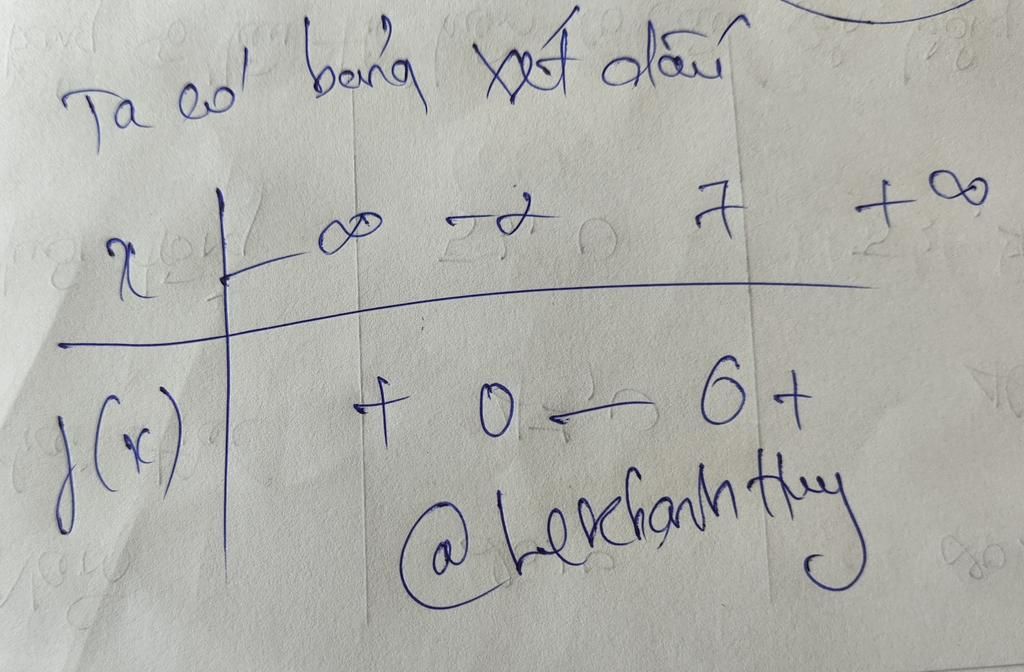 Ta có bảng xét dấu
x -∞ -2 7 +∞
f(x) + 0 - 0 +
@LeKhanhHuy